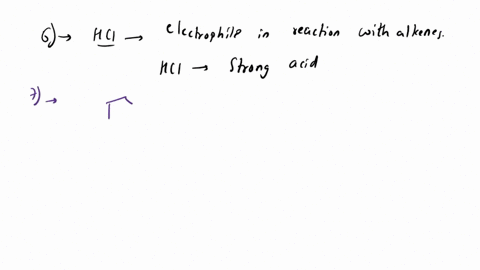 6) → HCl → electrophile in reaction with alkenes.
HCl → Strong acid
7) →